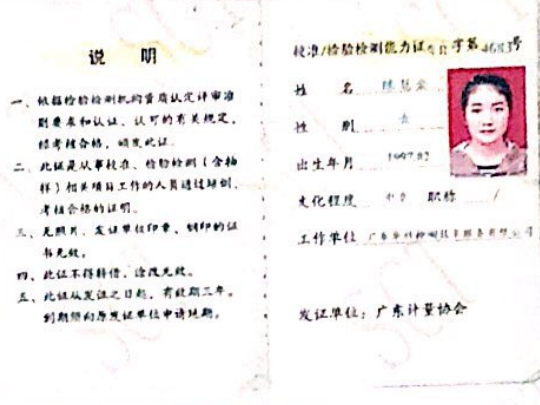 说 明
一、依据检验检测机构资质认定评审准
则要求和认证、认可的有关规定,
经考核合格,颁发此证。
二、此证是从事校准、检验检测(含抽
样)相关项目工作的人员通过培训,
考核合格的证明。
三、无照片、发证单位印章、钢印的证
书无效。
四、此证不得转借、涂改无效。
五、此证从发证之日起,有效期三年。
到期须向原发证单位申请延期。
校准/检验检测能力证 字第4683号
姓 名
性 别 女
出生年月 1997.02
文化程度 中专 职称 /
工作单位 广东 检测技术服务有限公司
发证单位:广东计量协会